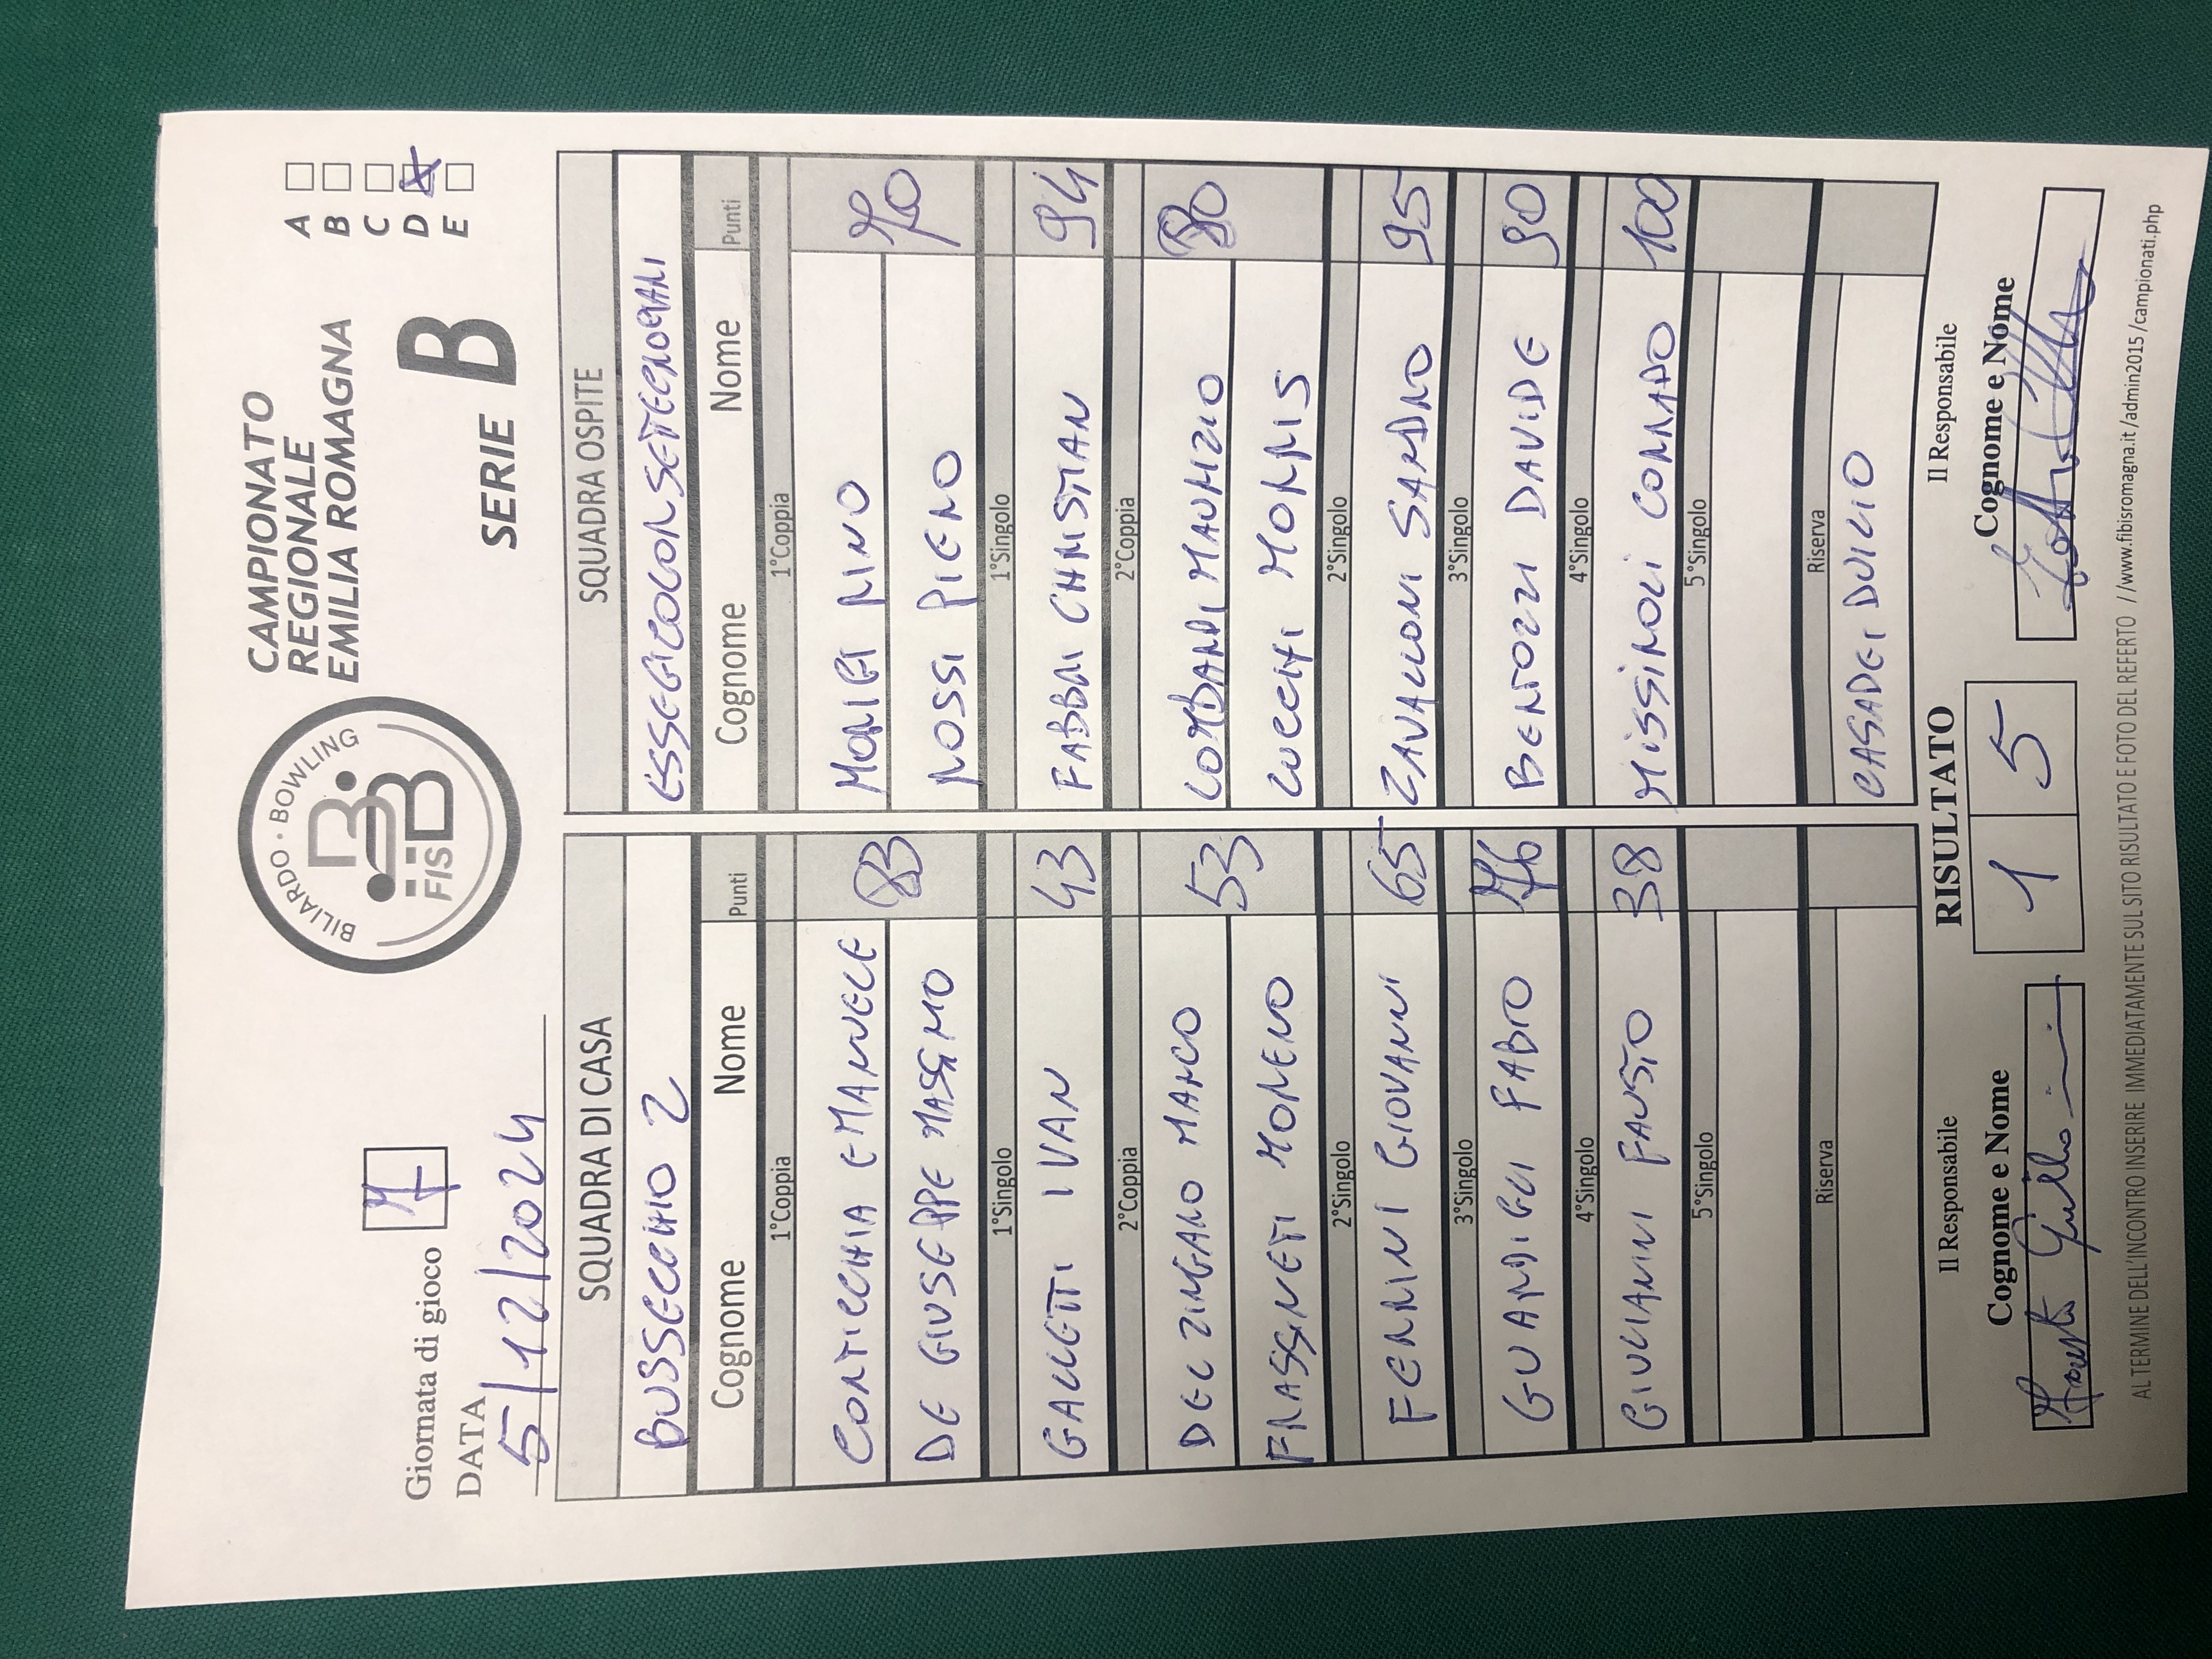 Giornata di gioco 7
DATA
5/12/2024
BILIARDO · BOWLING
FISBB
CAMPIONATO
REGIONALE
EMILIA ROMAGNA
SERIE B
A
B
C
D X
E
SQUADRA DI CASA SQUADRA OSPITE
BUSSECCHIO 2
Cognome Nome Punti Cognome Nome Punti
1°Coppia 1°Coppia
CORTICCHIA EMANUELE 83 MORIGI RINO 70
DE GIUSEPPE MASSIMO ROSSI PIERO
1°Singolo 1°Singolo
GALLETTI IVAN 43 FABBRI CHRISTIAN 94
2°Coppia 2°Coppia
DEL ZINGARO MARCO 53 LOMBARDI MAURIZIO 80
FRASSINETI MORENO LUCCHI MORRIS
2°Singolo 2°Singolo
FERRINI GIOVANNI 65 ZAVALLONI SANDRO 95
3°Singolo 3°Singolo
GUARDIGLI FABIO 76 BERTOZZI DAVIDE 90
4°Singolo 4°Singolo
GIULIANINI FAUSTO 38 MISSIROLI CORRADO 100
5°Singolo 5°Singolo
Riserva Riserva
CASADEI DUILIO
Il Responsabile RISULTATO Il Responsabile
Cognome e Nome 1 5 Cognome e Nome
AL TERMINE DELL'INCONTRO INSERIRE IMMEDIATAMENTE SUL SITO RISULTATO E FOTO DEL REFERTO //www.fibisromagna.it/admin2015/campionati.php